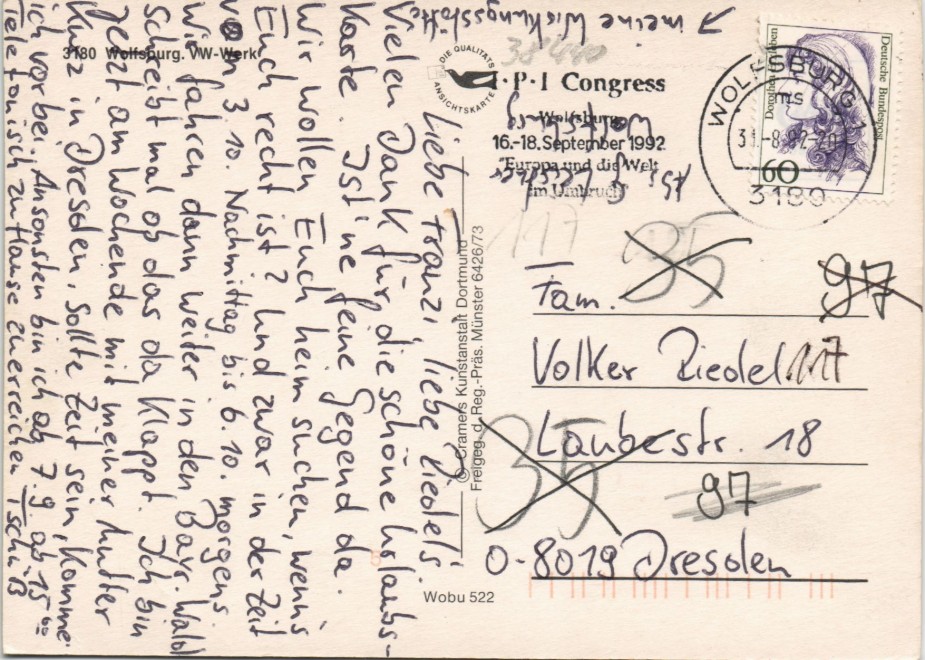 → meine Wirkungsstätte
3180 Wolfsburg. VW-Werk
DIE QUALITÄTS
ANSICHTSKARTE
I·P·I Congress
Wolfsburg
16.-18. September 1992
Europa und die Welt
im Umbruch
WOLFSBURG 1
ms
3189
Deutsche Bundespost
Dorothea Erxleben
60
Abs.
Wolfsburg
Liebe Franzi, liebe Riedels.
Vielen Dank für die schöne Urlaubs-
karte. Ist 'ne feine Gegend da.
Wir wollen Euch heim suchen, wenns
Euch recht ist? Und zwar in der Zeit
von 3.10. Nachmittag bis 6.10. morgens
Wir fahren dann weiter in den Bayr. Wald
Schreibt mal ob das da klappt. Ich bin
jetzt am Wochende mit meiner Mutter
kurz in Dresden. Sollte Zeit sein, komme
ich vorbei, Ansonsten bin ich ab 7.9. ab 15⁰⁰
telefonisch zu Hause zuerreichen Tschüß
© Cramers Kunstanstalt Dortmund
Freigeg. d. Reg.-Präs. Münster 6426/73
Wobu 522
117
35
97
Fam.
Volker Riedel 117
Laubestr. 18
35
97
O-8019 Dresden